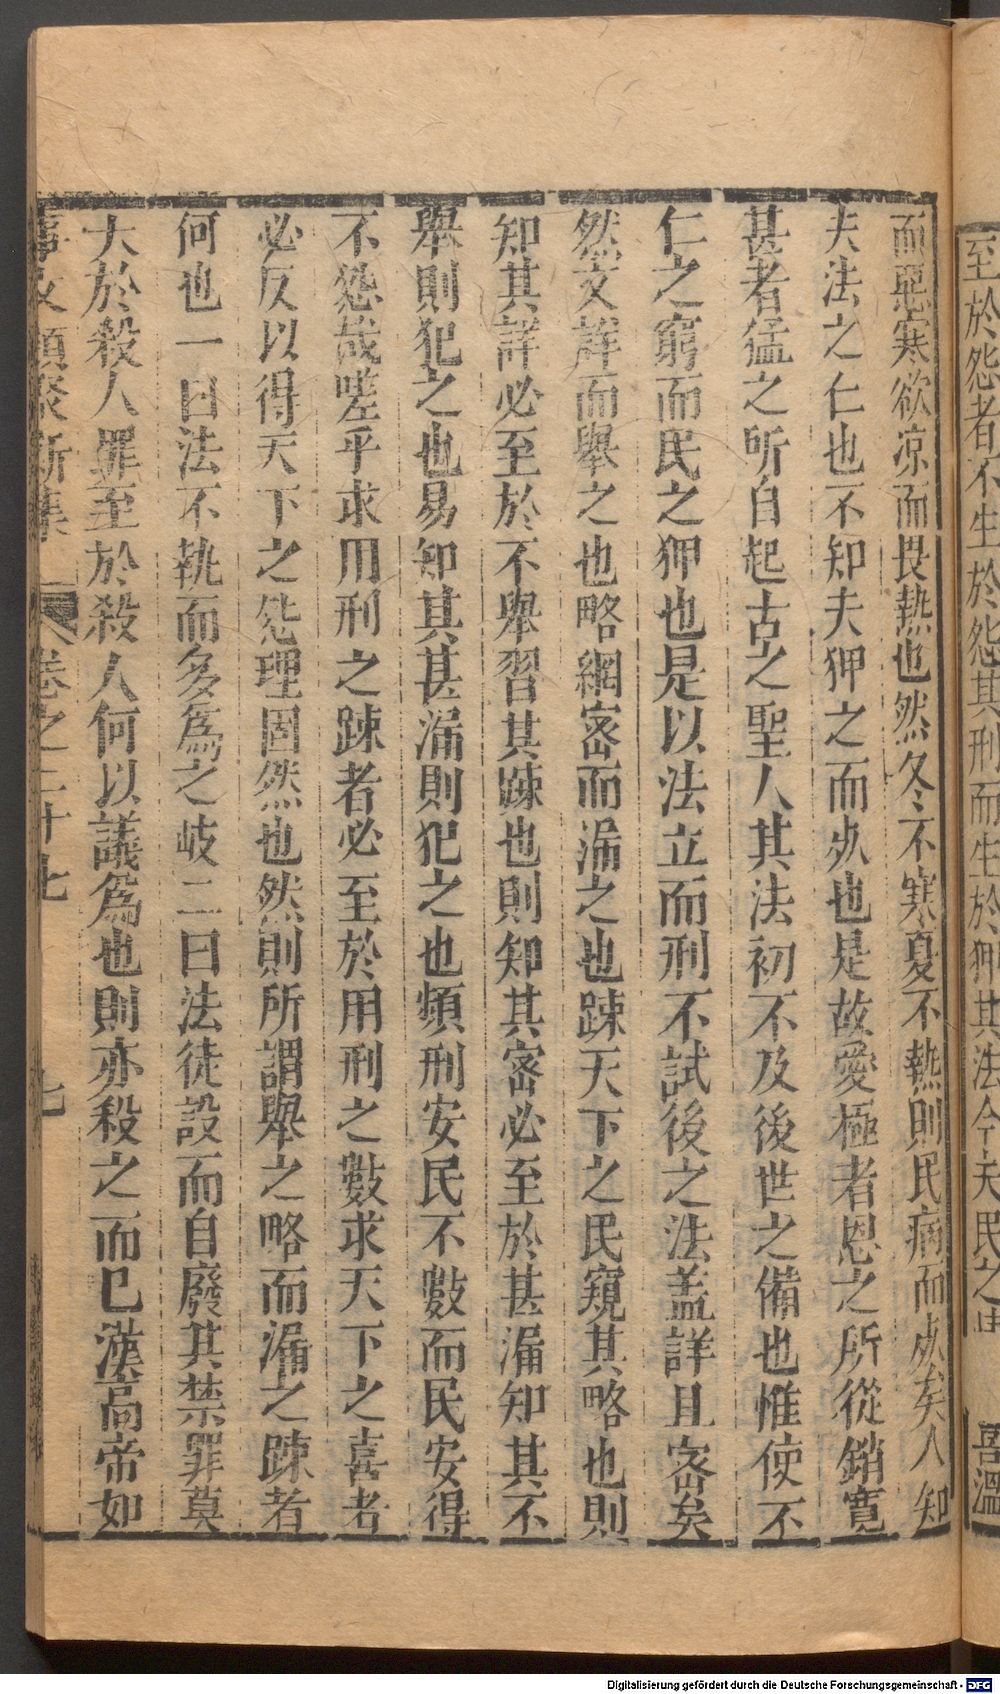 至於怨者不生於怨其刑而生於狎其法今夫民之
喜溫
而惡寒欲凉而畏熱也然冬不寒夏不熱則民病而死矣人知
夫法之仁也不知夫狎之而死也是故愛極者恩之所從銷寬
甚者猛之所自起古之聖人其法初不及後世之備也惟使不
仁之窮而民之狎也是以法立而刑不試後之法盖詳且宻矣
然文詳而舉之也略網宻而漏之也踈天下之民窺其略也則
知其詳必至於不舉習其踈也則知其宻必至於甚漏知其不
舉則犯之也易知其甚漏則犯之也煩刑安民不數而民安得
不怨哉嗟乎求用刑之踈者必至於用刑之數求天下之喜者
必反以得天下之怨理固然也然則所謂舉之略而漏之踈者
何也一曰法不執而多爲之岐二曰法徒設而自廢其禁罪莫
大於殺人罪至於殺人何以議爲也則亦殺之而已漢高帝如
事文類聚新集 卷之二十七 七
Digitalisierung gefördert durch die Deutsche Forschungsgemeinschaft - DFG